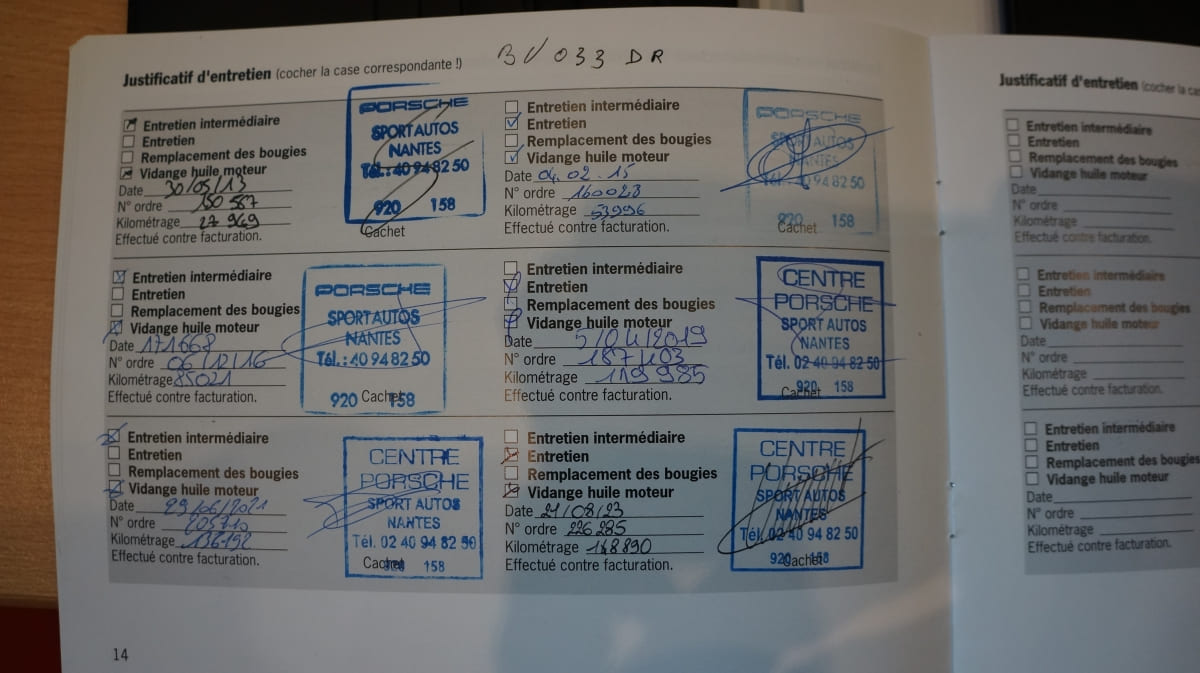 Justificatif d'entretien (cocher la case correspondante !) BV 033 DR
Entretien intermédiaire
Entretien
Remplacement des bougies
Vidange huile moteur
Date 30/05/13
N° ordre 150587
Kilométrage 27 969
Effectué contre facturation.
PORSCHE
SPORT AUTOS
NANTES
Tél.: 40 94 82 50
920 158
Cachet
Entretien intermédiaire
Entretien
Remplacement des bougies
Vidange huile moteur
Date 04.02.15
N° ordre 160023
Kilométrage 53996
Effectué contre facturation.
PORSCHE
SPORT AUTOS
NANTES
Tél.: 40 94 82 50
920 158
Cachet
Entretien intermédiaire
Entretien
Remplacement des bougies
Vidange huile moteur
Date 171668
N° ordre 06/12/16
Kilométrage 85021
Effectué contre facturation.
PORSCHE
SPORT AUTOS
NANTES
Tél.: 40 94 82 50
920 158
Cachet
Entretien intermédiaire
Entretien
Remplacement des bougies
Vidange huile moteur
Date 5/04/2019
N° ordre 187403
Kilométrage 119 985
Effectué contre facturation.
CENTRE
PORSCHE
SPORT AUTOS
NANTES
Tél. 02 40 94 82 50
920 158
Cachet
Entretien intermédiaire
Entretien
Remplacement des bougies
Vidange huile moteur
Date 29/06/2021
N° ordre 205710
Kilométrage 136192
Effectué contre facturation.
CENTRE
PORSCHE
SPORT AUTOS
NANTES
Tél. 02 40 94 82 50
158
Cachet
Entretien intermédiaire
Entretien
Remplacement des bougies
Vidange huile moteur
Date 21/08/23
N° ordre 226285
Kilométrage 148890
Effectué contre facturation.
CENTRE
PORSCHE
SPORT AUTOS
NANTES
Tél. 02 40 94 82 50
920 158
Cachet
14
Justificatif d'entretien (cocher la cas
Entretien intermédiaire
Entretien
Remplacement des bougies
Vidange huile moteur
Date
N° ordre
Kilométrage
Effectué contre facturation.
Entretien intermédiaire
Entretien
Remplacement des bougies
Vidange huile moteur
Date
N° ordre
Kilométrage
Effectué contre facturation.
Entretien intermédiaire
Entretien
Remplacement des bougies
Vidange huile moteur
Date
N° ordre
Kilométrage
Effectué contre facturation.